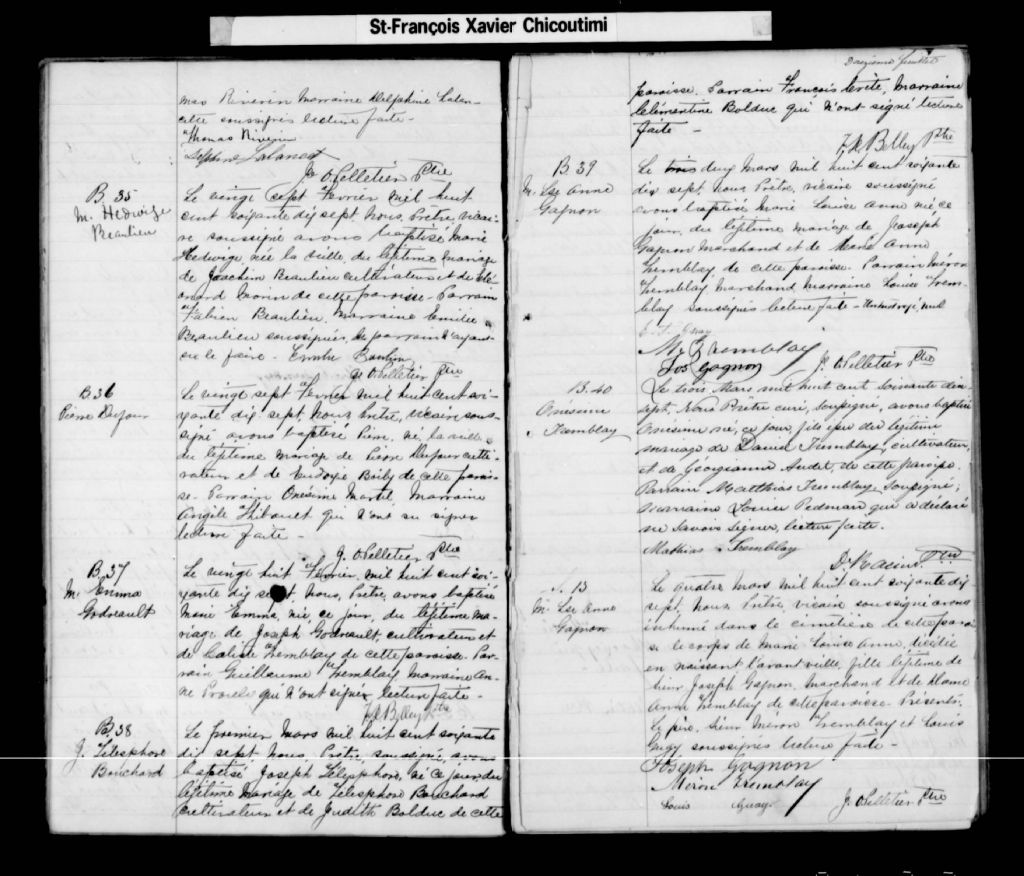 St-François Xavier Chicoutimi
mas Riverin Marraine Delphine Lalan-
cette soussignés lecture faite -
Thomas Riverin
Delphine Lalancet
J. O Pelletier Ptre
B. 35
M. Hedwige
Beaulieu
Le vingt sept Février mil huit
cent soixante dix sept, nous, Prêtre, vicai-
re soussigné avons baptisé Marie
Hedwige, née la veille, du légitime mariage
de Joachim Beaulieu cultivateur et de
Morin de cette paroisse - Parrain
Fabien Beaulieu, Marraine Emilie
Beaulieu soussignés, le parrain n'ayant
su le faire -
J. O Pelletier Ptre
B 36
Pierre Dufour
Le vingt sept Février mil huit cent soi-
xante dix sept, nous Prêtre, vicaire sous-
signé avons baptisé Pierre, né la veille
du légitime mariage de Pierre Dufour culti-
vateur et de Eudoxie Boily de cette parois-
se - Parrain Onésime Martel Marraine
Angèle Thibault qui n'ont su signer
lecture faite -
J. O Pelletier Ptre
B. 37
M. Emma
Godreault
Le vingt huit Février mil huit cent soi-
xante dix sept nous, Prêtre, avons baptisé
Marie Emma, née ce jour, du légitime ma-
riage de Joseph Godreault, cultivateur et
de Calixte Tremblay de cette paroisse - Par-
rain Guillaume Tremblay Marraine An-
ne qui n'ont signé lecture faite -
Ptre
B. 38
J. Télesphore
Bouchard
Le premier Mars mil huit cent soixante
dix sept nous, Prêtre, soussigné, avons
baptisé Joseph Télesphore, né ce jour du
légitime mariage de Télesphore Bouchard
cultivateur et de Judith Bolduc de cette
feuillet
paroisse. Parrain François Marraine
Clémentine Bolduc qui n'ont signé lecture
faite -
Belley Ptre
B. 39
M. Lse Anne
Gagnon
Le trois deux Mars mil huit cent soixante
dix sept nous Prêtre, vicaire soussigné
avons baptisé Marie Louise Anne née ce
jour, du légitime mariage de Joseph
Gagnon Marchand et de Marie Anne
Tremblay de cette paroisse. Parrain Méron
Tremblay marchand, marraine Louise Trem-
blay soussignés lecture faite - nul
M. Tremblay
Jos Gagnon J. O Pelletier Ptre
B. 40
Onésime
Tremblay
Le trois Mars mil huit cent soixante dix
sept, Nous Prêtre curé, soussigné, avons baptisé
Onésime né, ce jour, fils issu du légitime
mariage de David Tremblay, cultivateur,
et de Géorgianne Audet, de cette paroisse.
Parrain Matthias Tremblay soussigné;
Marraine qui a déclaré
ne savoir signer, lecture faite.
Mathias Tremblay
D. Racine Ptre
S. 13
M. Lse Anne
Gagnon
Le quatre Mars mil huit cent soixante dix
sept, nous Prêtre, vicaire soussigné avons
inhumé dans le cimetière de cette parois-
se le corps de Marie Louise Anne, décédée
en naissant l'avant veille, fille légitime de
Sieur Joseph Gagnon, Marchand et de Dame
Anne Tremblay de cette paroisse - Présents,
le père, Sieur Méron Tremblay et Louis
Guay soussignés lecture faite -
Joseph Gagnon
Méron Tremblay
Louis Guay J. O Pelletier Ptre